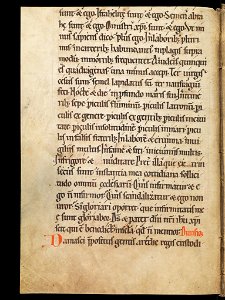 hę sunt & ego Israhelitę sunt & ego Semen abra
hę sunt & ego Ministri xpi sunt & ego Vt mi
nus sapiens dico Plus ego In laborib; pluri
mis In carcerib; habundantius In plagis supra
modum In mortib; frequenter A iudeis quinquies
quadragenas una minus accepi Ter uirgis
cesus sum Semel lapidatus sum Ter naufragiũ
feci Nocte & die In profundo maris fui In itineri
bs sepe periculis fluminũ periculis latronũ peri
culis ex genere periculis ex gentib; periculis In ciui
tate periculis In solitudine periculis In mari peri
culis In falsis fratrib; In labore & erumna In ui
giliis multis In fame & siti In ieiuniis multis
In frigore & nuditate Preter illa que extrin
secus sunt Instantia mea cotidiana sollici
tudo omnium ecclesiarũ Quis infirmatur & e
go non infirmor Quis scandalizatur & ego non
uror Si gloriari oportet que infirmitatis me
e sunt gloriabor Ds & pater dni nri ihu xpi
scit qui e benedictus In secula qd non mentior
Damasci Prepositus gentis arethe regis custodi